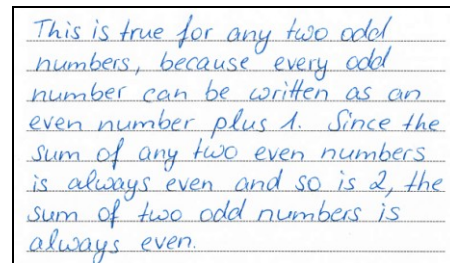 This is true for any two odd
numbers, because every odd
number can be written as an
even number plus 1. Since the
sum of any two even numbers
is always even and so is 2, the
sum of two odd numbers is
always even.